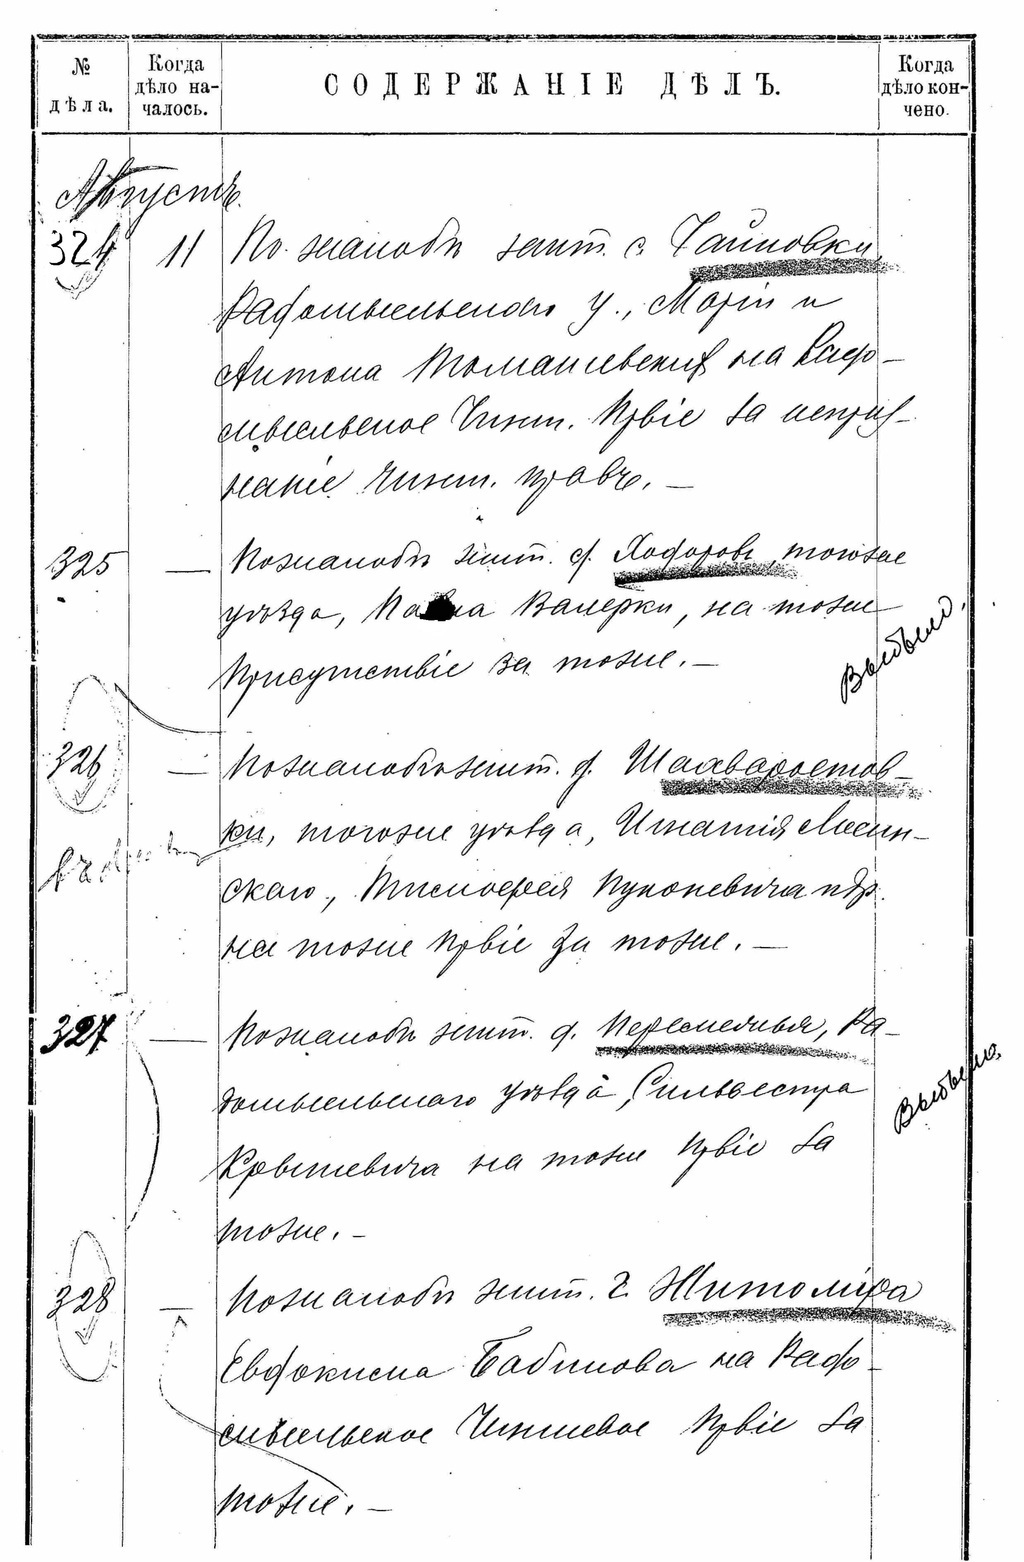 № дѣла.
Когда дѣло началось.
СОДЕРЖАНІЕ ДѢЛЪ.
Когда дѣло кончено.
Августъ.
324 11 По жалобѣ жит. с. Гайновки,
Радомысльскаго у., Маріи и
Антона Томашевских на Радо-
мысльское Чинш. Првіе за неприз-
наніе Чинш. правъ. —
325 — По жалобѣ жит. д. Ходоровъ, тогоже
уѣзда, Павла Валерки, на тоже
Присутствіе за тоже. —
Выбыло.
326 — По жалобѣ жит. д. Шахваростов-
ки, тогоже уѣзда, Игнатія
скаго, Тимофея и др.
на тоже Првіе за тоже. —
327 — По жалобѣ жит. д. Ра-
домысльскаго уѣзда, Сильвестра
на тоже Првіе за
тоже. —
Выбыло.
328 — По жалобѣ жит. г. Житоміра
Евдокима Бабинова на Радо-
мысльское Чиншевое Првіе за
тоже. —